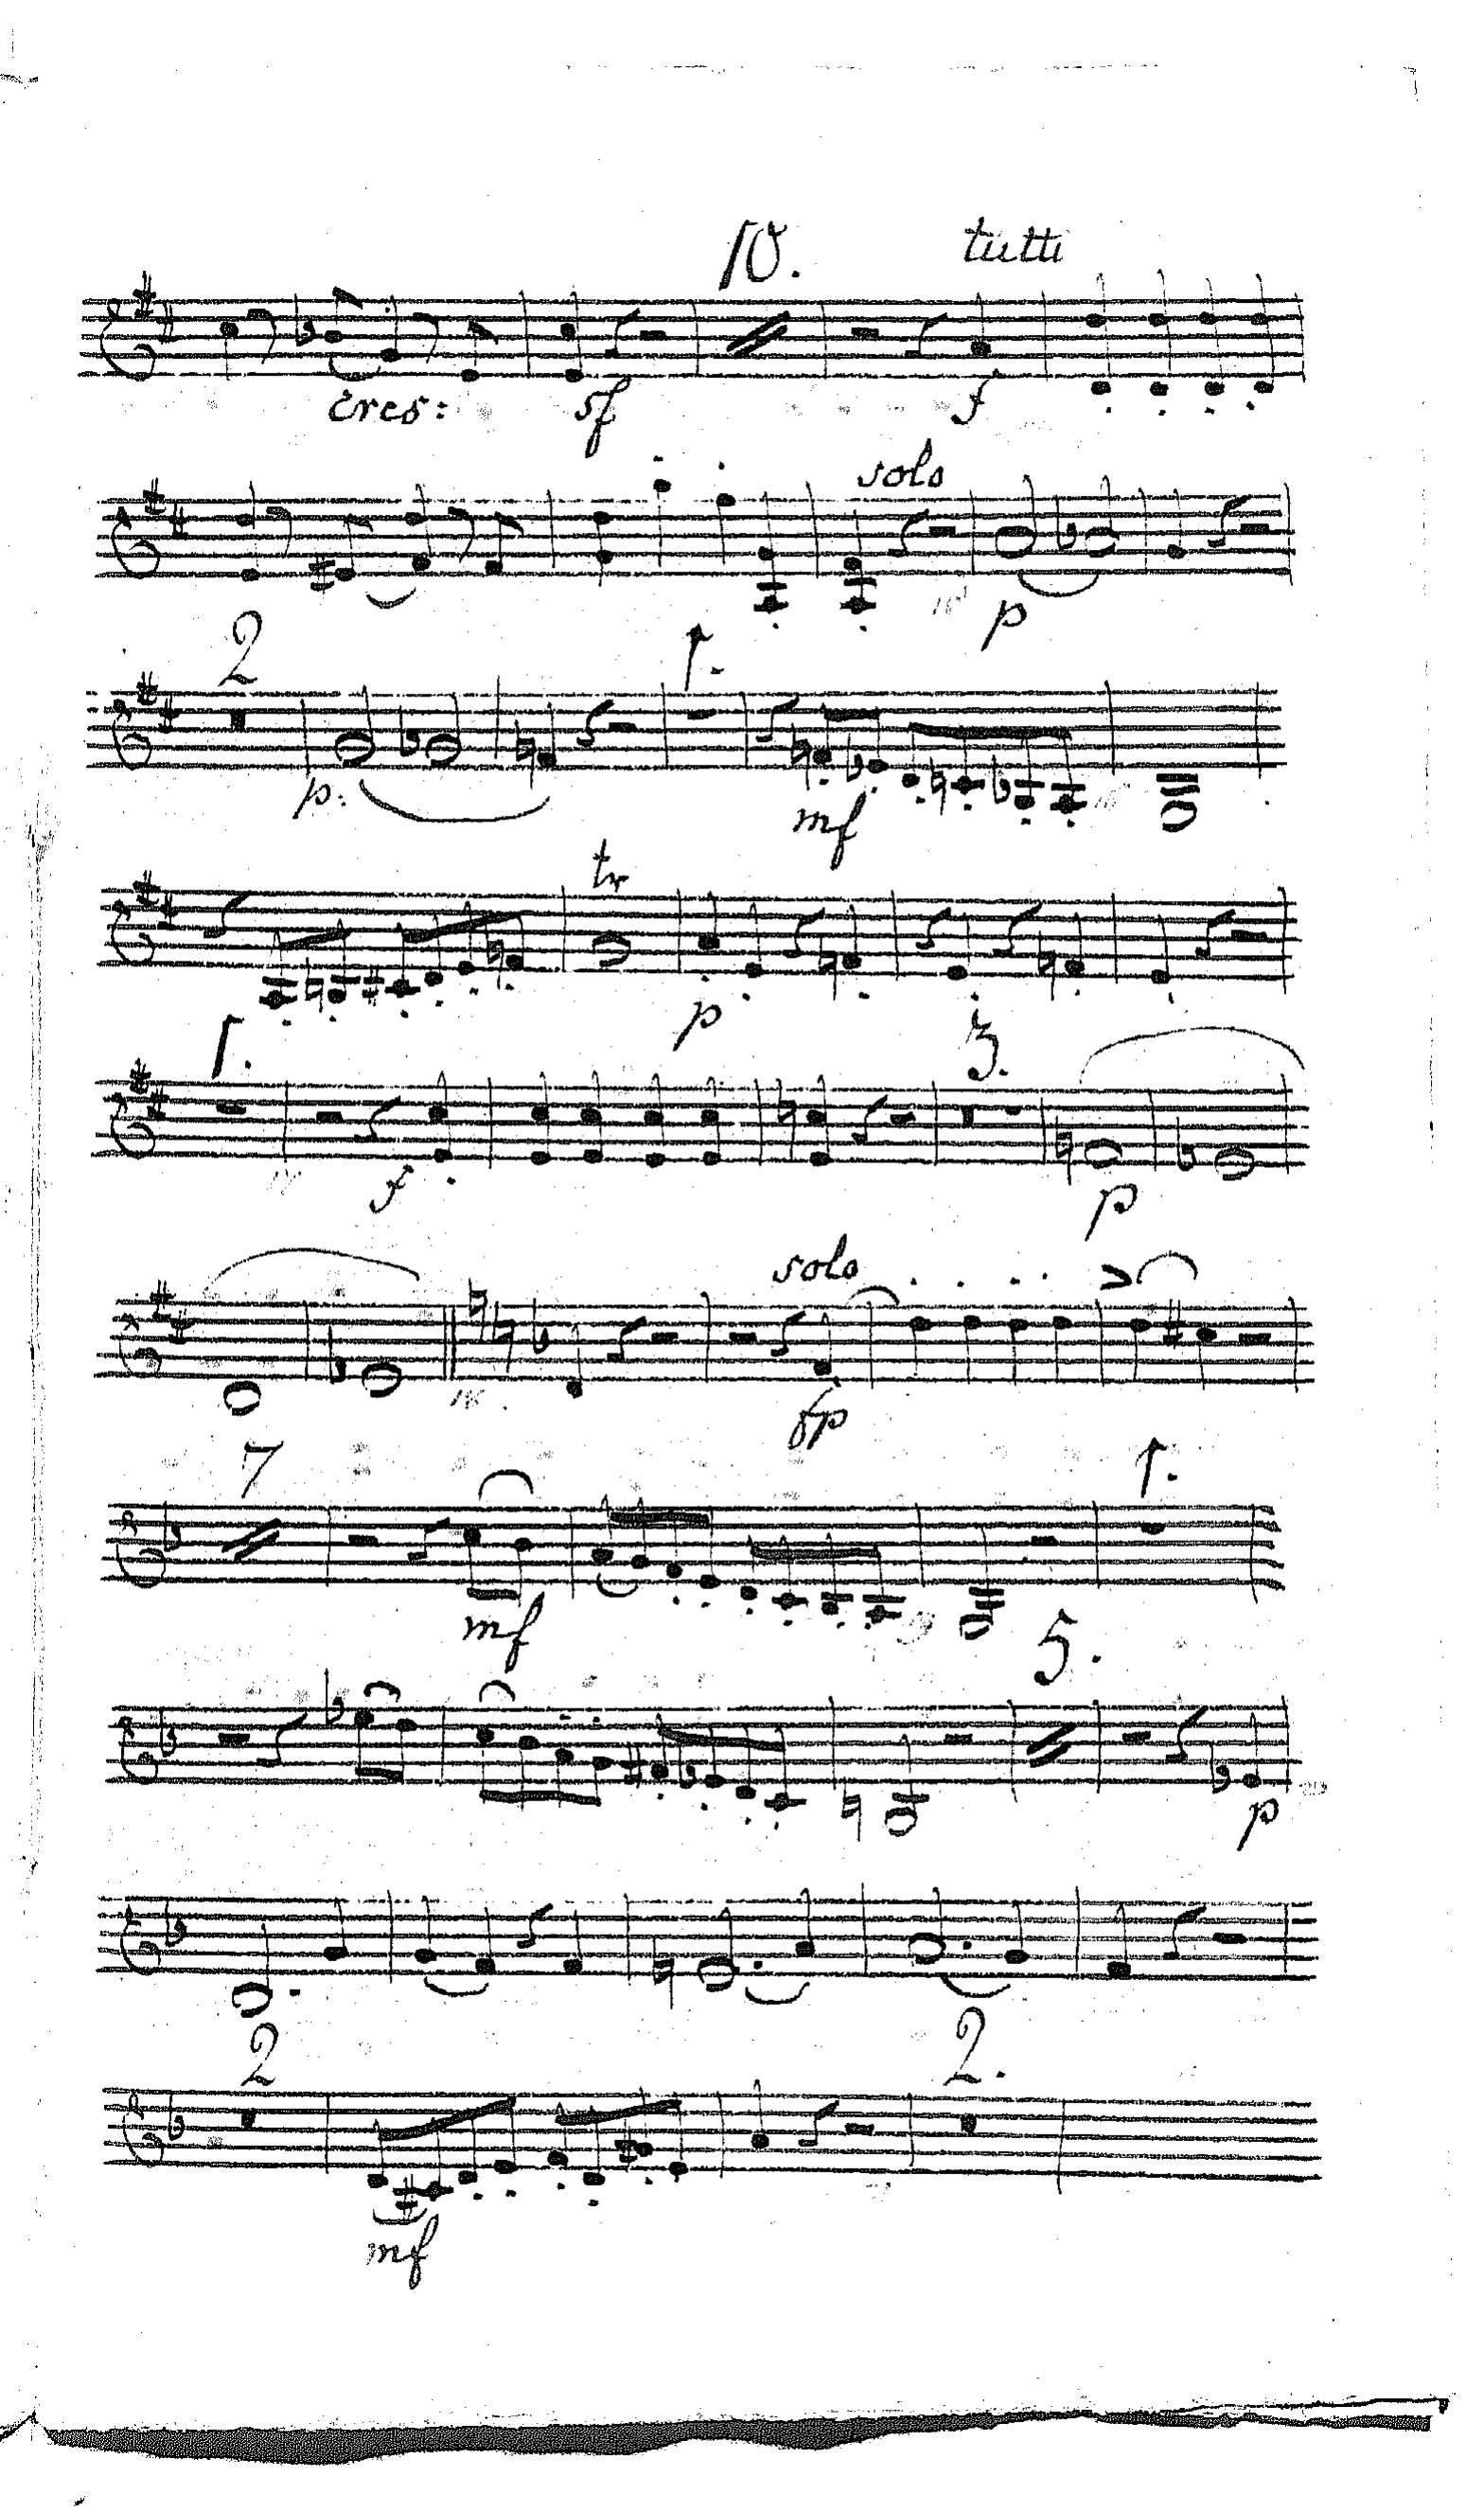 10. tutti
cres: sf f
solo
p
2 1.
p: mf
tr
p
1. 3.
f p
solo
fp
7 1.
mf
5.
p
2 2.
mf